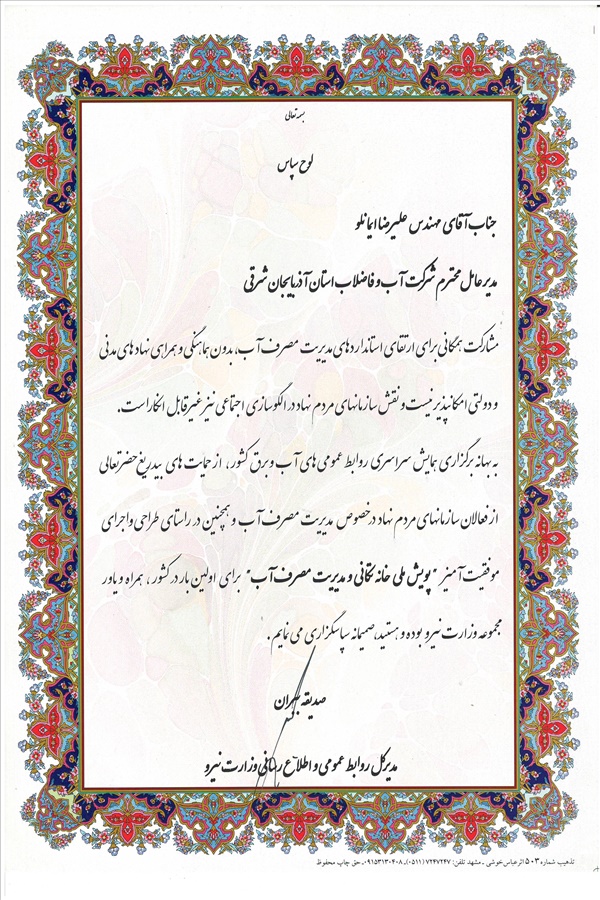 بسمه تعالی
لوح سپاس
جناب آقای مهندس علیرضا ایمانلو
مدیرعامل محترم شرکت آب و فاضلاب استان آذربایجان شرقی
مشارکت همگانی برای ارتقای استانداردهای مدیریت مصرف آب، بدون هماهنگی و همراهی نهادهای مدنی
و دولتی امکانپذیر نیست و نقش سازمانهای مردم نهاد در الگوسازی اجتماعی نیز غیرقابل انکار است.
به بهانه برگزاری همایش سراسری روابط عمومی های آب و برق کشور، از حمایت های بیدریغ حضرتعالی
از فعالان سازمانهای مردم نهاد درخصوص مدیریت مصرف آب و همچنین در راستای طراحی و اجرای
موفقیت آمیز "پویش ملی خانه تکانی و مدیریت مصرف آب" برای اولین بار در کشور، همراه و یاور
مجموعه وزارت نیرو بوده و هستید، صمیمانه سپاسگزاری می نمایم.
صدیقه ببران
مدیرکل روابط عمومی و اطلاع رسانی وزارت نیرو
تذهیب شماره ۵۰۳ اثر عباس خوشی - مشهد تلفن: ۷۲۴۷۲۴۷ (۰۵۱۱)-۰۹۱۵۳۱۳۰۴۰۸ حق چاپ محفوظ